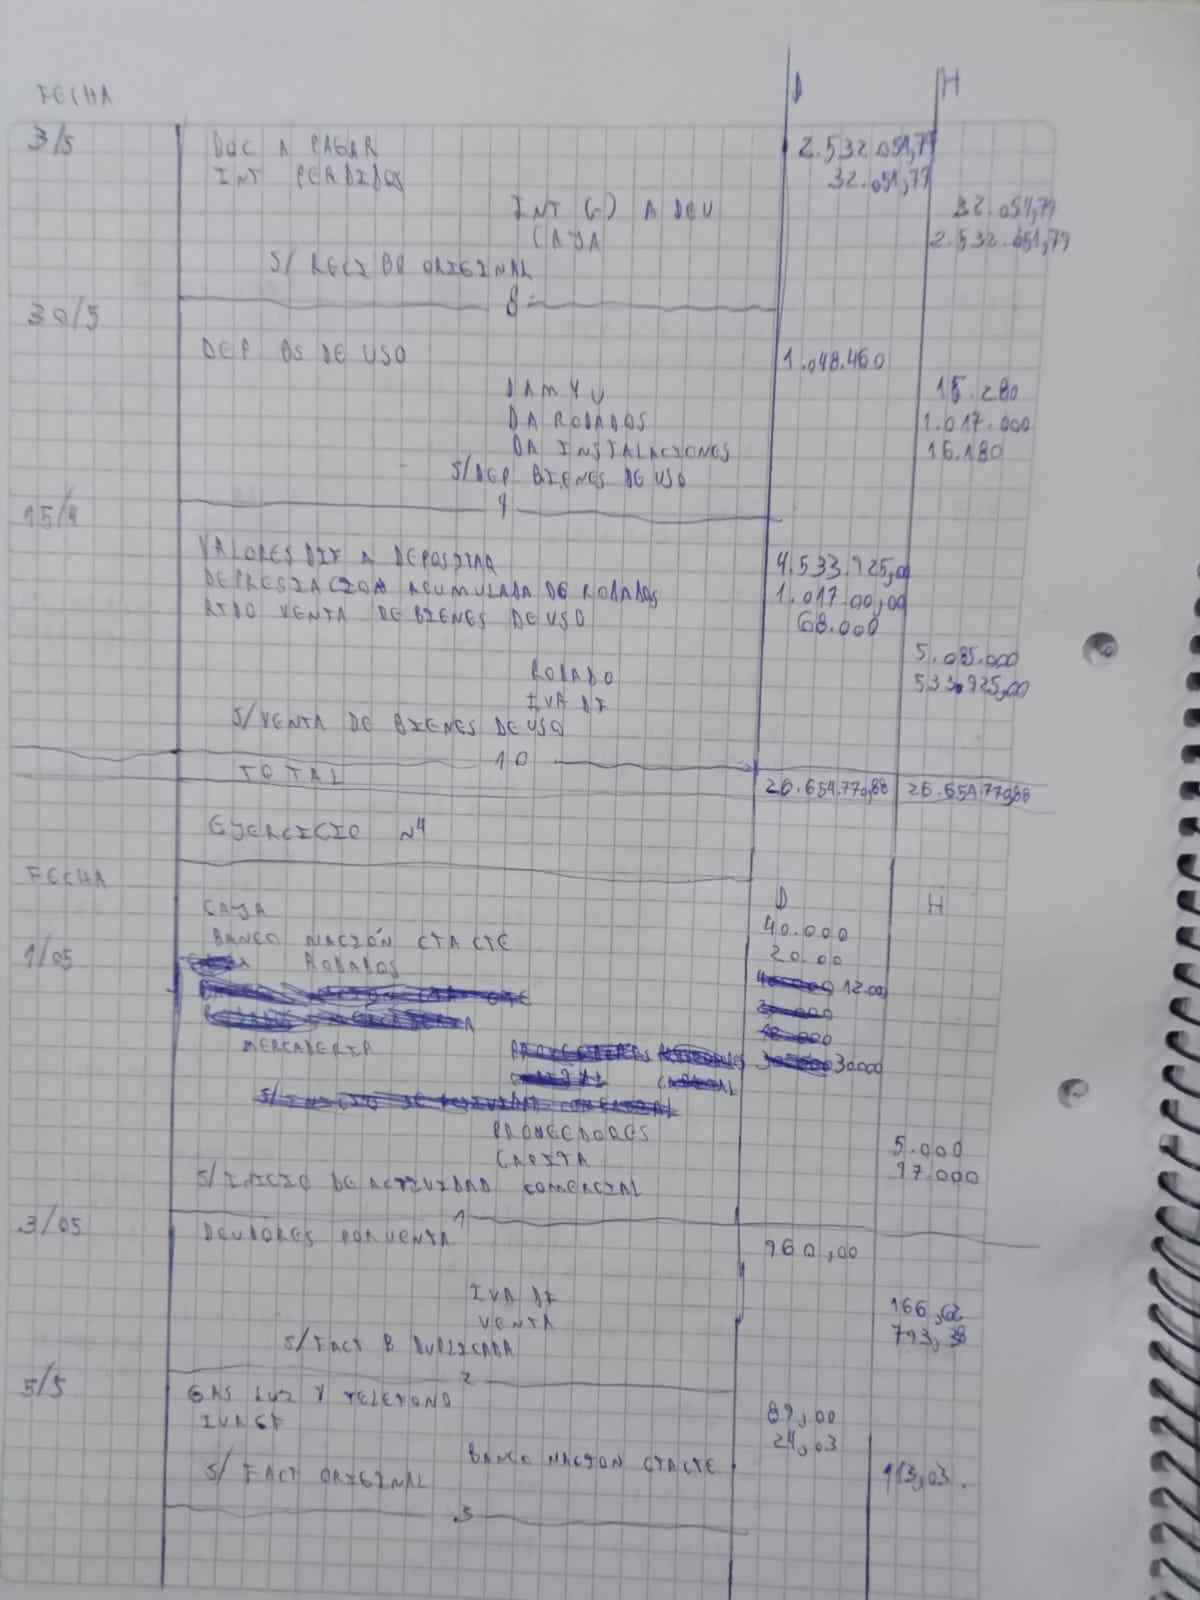 FECHA D H
3/5 DOC A PAGAR 2.532.051,79
INT PERDIDOS 32.051,79
INT (-) A DEV 32.051,79
CAJA 2.532.051,79
S/ RECIBO ORIGINAL
8
30/5
DEP BS DE USO 1.048.460
DA M Y U 15.280
DA RODADOS 1.017.000
DA INSTALACIONES 16.180
S/DEP BIENES DE USO
9
15/4
VALORES DIF A DEPOSITAR 4.533.925,00
DEPRESIACION ACUMULADA DE RODADOS 1.017.00,00
RTDO VENTA DE BIENES DE USO 68.000
RODADO 5.085.000
IVA DF 533.925,00
S/VENTA DE BIENES DE USO
10
TOTAL 26.654.770,88 26.654.770,88
EJERCICIO N4
FECHA D H
CAJA 40.000
BANCO NACIÓN CTA CTE 20.00
1/05 RODADOS 12.00
MERCADERIA 30.000
PROVEEDORES 5.000
CAPITA 97.000
S/INICIO DE ACTIVIDAD COMERCIAL
1
3/05 DEUDORES POR VENTA 960,00
IVA DF 166,62
VENTA 793,38
S/FACT B DUPLICADA
2
5/5 GAS LUZ Y TELEFONO 89,00
IVA CF 24,03
BANCO NACION CTACTE 113,03.
S/ FACT ORIGINAL
3